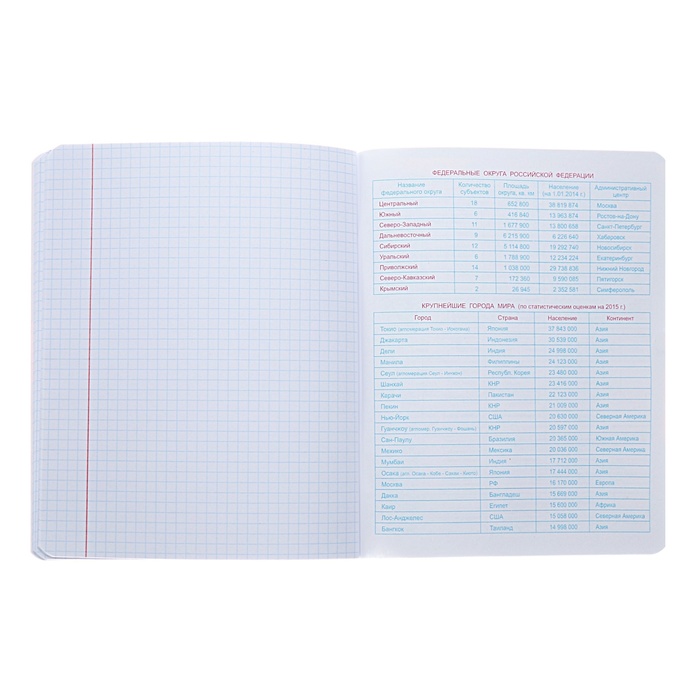 ФЕДЕРАЛЬНЫЕ ОКРУГА РОССИЙСКОЙ ФЕДЕРАЦИИ
Название федерального округа Количество субъектов Площадь округа, кв. км Население (на 1.01.2014 г.) Административный центр
Центральный 18 652 800 38 819 874 Москва
Южный 6 416 840 13 963 874 Ростов-на-Дону
Северо-Западный 11 1 677 900 13 800 658 Санкт-Петербург
Дальневосточный 9 6 215 900 6 226 640 Хабаровск
Сибирский 12 5 114 800 19 292 740 Новосибирск
Уральский 6 1 788 900 12 234 224 Екатеринбург
Приволжский 14 1 038 000 29 738 836 Нижний Новгород
Северо-Кавказский 7 172 360 9 590 085 Пятигорск
Крымский 2 26 945 2 352 581 Симферополь
КРУПНЕЙШИЕ ГОРОДА МИРА (по статистическим оценкам на 2015 г.)
Город Страна Население Континент
Токио (агломерация Токио - Иокогама) Япония 37 843 000 Азия
Джакарта Индонезия 30 539 000 Азия
Дели Индия 24 998 000 Азия
Манила Филиппины 24 123 000 Азия
Сеул (агломерация Сеул - Инчхон) Республ. Корея 23 480 000 Азия
Шанхай КНР 23 416 000 Азия
Карачи Пакистан 22 123 000 Азия
Пекин КНР 21 009 000 Азия
Нью-Йорк США 20 630 000 Северная Америка
Гуанчжоу КНР 20 597 000 Азия
Сан-Паулу Бразилия 20 365 000 Южная Америка
Мехико Мексика 20 036 000 Северная Америка
Мумбаи Индия 17 712 000 Азия
Осака Япония 17 444 000 Азия
Москва РФ 16 170 000 Европа
Дакка Бангладеш 15 669 000 Азия
Каир Египет 15 600 000 Африка
Лос-Анджелес США 15 058 000 Северная Америка
Бангкок Таиланд 14 998 000 Азия